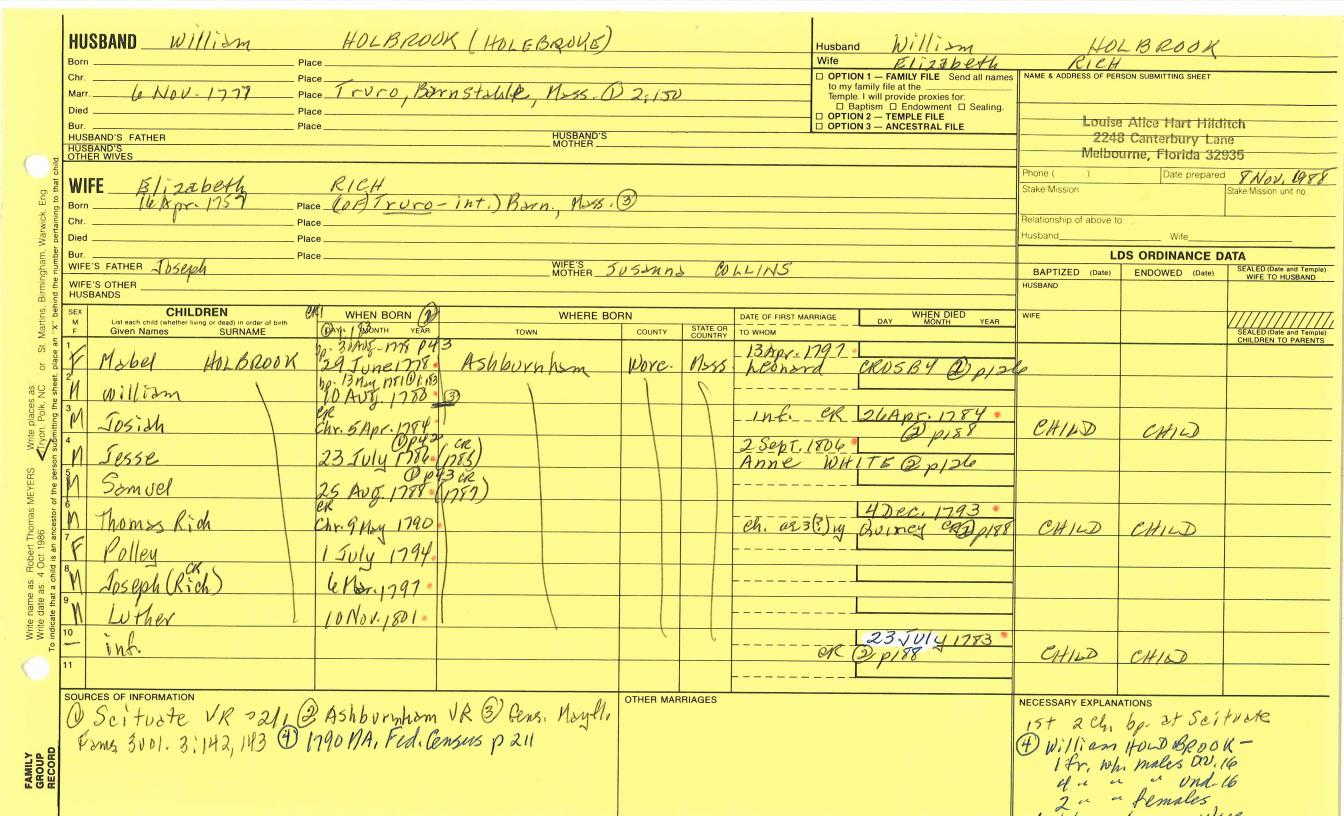 HUSBAND William HOLBROOK (HOLEBROKE)
Born Place
Chr. Place
Marr. 6 Nov. 1777 Place Truro, Barnstable, Mass. ① 2:150
Died Place
Bur. Place
HUSBAND'S FATHER HUSBAND'S MOTHER
HUSBAND'S OTHER WIVES
Husband William HOLBROOK
Wife Elizabeth RICH
☐ OPTION 1 — FAMILY FILE Send all names
to my family file at the
Temple. I will provide proxies for:
☐ Baptism ☐ Endowment ☐ Sealing.
☐ OPTION 2 — TEMPLE FILE
☐ OPTION 3 — ANCESTRAL FILE
NAME & ADDRESS OF PERSON SUBMITTING SHEET
Louise Alice Hart Hilditch
2248 Canterbury Lane
Melbourne, Florida 32935
Phone ( ) Date prepared 8 Nov. 1988
Stake/Mission Stake/Mission unit no.
Relationship of above to
Husband Wife
WIFE Elizabeth RICH
16 Apr. 1757 Place (of Truro - int.) Barn., Mass. ③
Chr. Place
Died Place
Bur. Place
WIFE'S FATHER Joseph WIFE'S MOTHER Susanna COLLINS
WIFE'S OTHER HUSBANDS
LDS ORDINANCE DATA
BAPTIZED (Date) ENDOWED (Date) SEALED (Date and Temple) WIFE TO HUSBAND
HUSBAND
WIFE
SEALED (Date and Temple) CHILDREN TO PARENTS
SEX M F
CHILDREN
List each child (whether living or dead) in order of birth
Given Names SURNAME
WHEN BORN ②
DAY MONTH YEAR
WHERE BORN
TOWN COUNTY STATE OR COUNTRY
DATE OF FIRST MARRIAGE
TO WHOM
WHEN DIED
DAY MONTH YEAR
bp. 30 Aug. 1778 p43 13 Apr. 1797
1 F Mabel HOLBROOK 29 June 1778 Ashburnham Worc. Mass. Leonard CROSBY ② p126
bp. 13 May 1781 ① 1:183
2 M William 10 Aug. 1780 ③
3 M Josiah CR Chr. 5 Apr. 1784 inf. CR 26 Apr. 1784 ② p188 CHILD CHILD
① p42 CR 2 Sept. 1806
4 M Jesse 23 July 1786 (1785) Anne WHITE ② p126
① p43 CR
5 M Samuel 25 Aug. 1788 (1787)
6 M Thomas Rich CR Chr. 9 May 1790 4 Dec. 1793
ch. ae 3(?) in Quincy CR ② p188 CHILD CHILD
7 F Polley 1 July 1794
8 M Joseph (Rich) CR 6 Mar. 1797
9 M Luther 10 Nov. 1801
10 — inf. 23 July 1783
CR ② p188 CHILD CHILD
11
SOURCES OF INFORMATION
① Scituate VR ② Ashburnham VR ③ Gens. Mayfl.
Fams 3 vol. 3:142, 143 ④ 1790 MA. Fed. Census p 211
OTHER MARRIAGES
NECESSARY EXPLANATIONS
1st 2 ch. bp. at Scituate
④ William HOLDBROOK —
1 fr. whi males ov. 16
4 " " " und. 16
2 " " females
Write name as: Robert Thomas MEYERS Write places as:
Write date as: 4 Oct 1986 Tryon, Polk, NC or St. Martins, Birmingham, Warwick, Eng
To indicate that a child is an ancestor of the person submitting the sheet, place an "X" behind the number pertaining to that child.
FAMILY
GROUP
RECORD